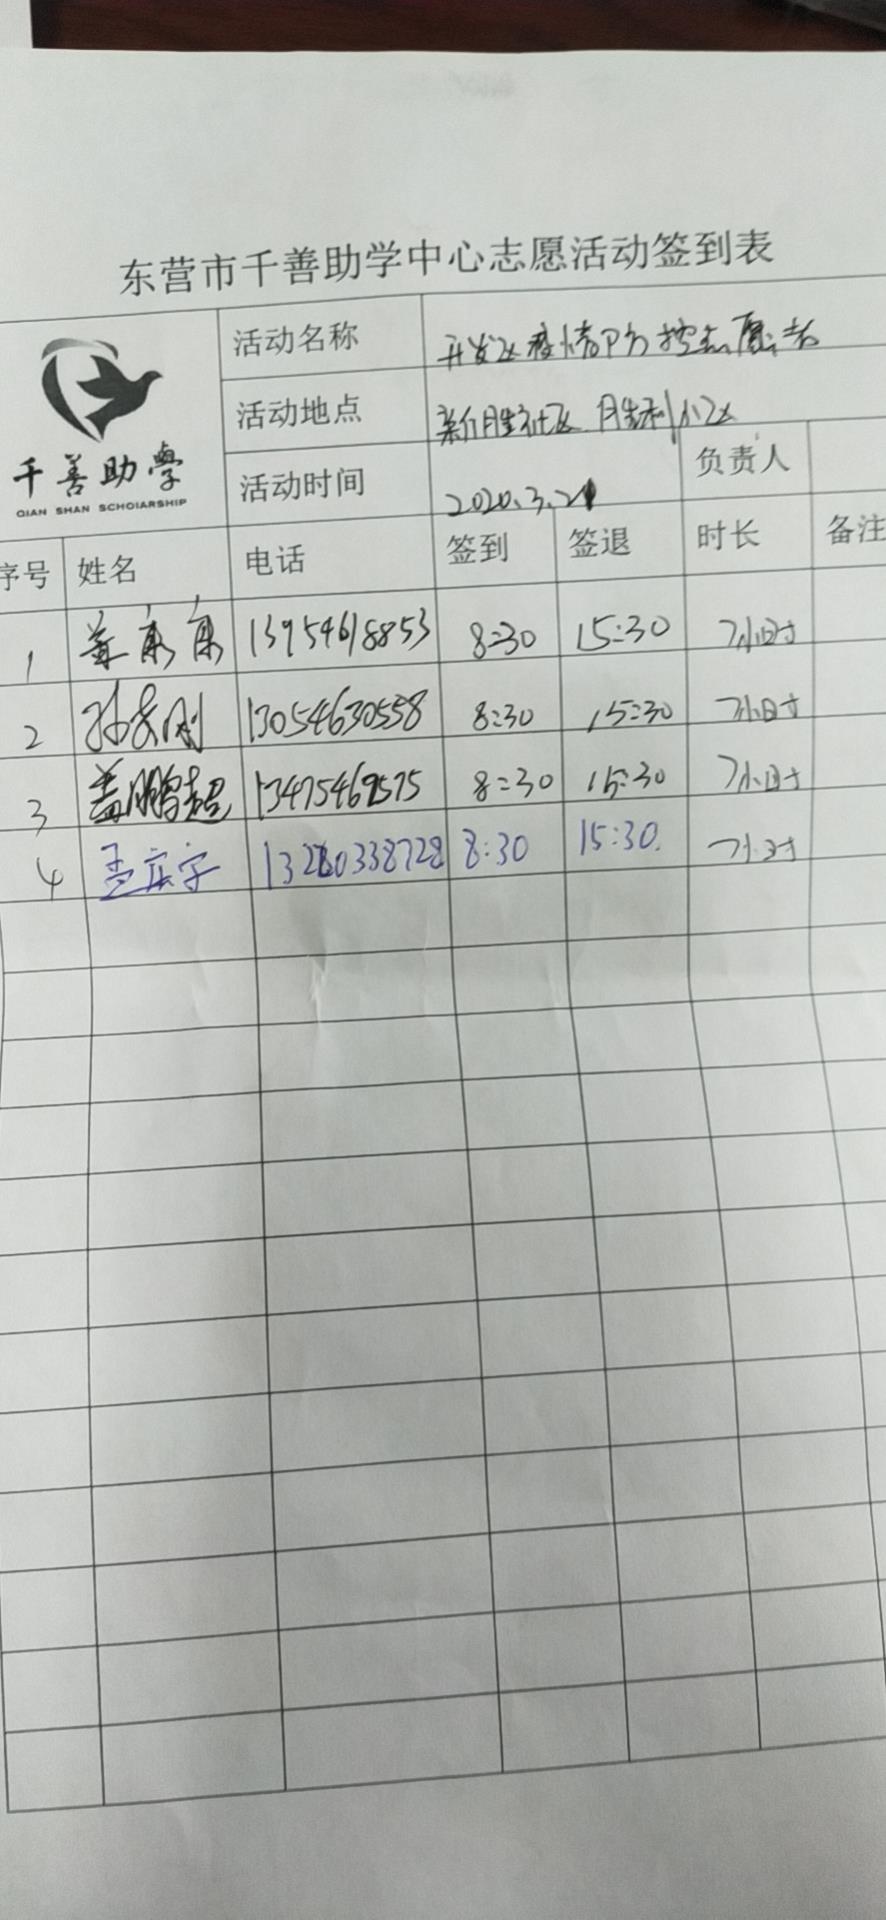 东营市千善助学中心志愿活动签到表
千善助學
QIAN SHAN SCHOIARSHIP
活动名称 开发区疫情防控志愿者
活动地点 新胜社区 胜利小区
活动时间 2020.3.21 负责人
序号 姓名 电话 签到 签退 时长 备注
1 13954618853 8:30 15:30 7小时
2 13054630558 8:30 15:30 7小时
3 盖鹏超 13475462575 8:30 15:30 7小时
4 孟庆宇 13280338728 8:30 15:30. 7小时